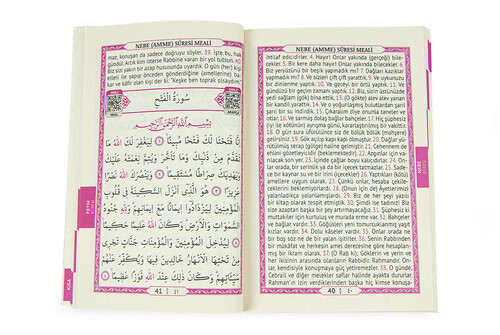 NEBE (AMME) SÛRESİ MEALİ
ihtilaf edicidirler. 4. Hayır! Onlar yakında (gerçeği) bile-
cekler. 5. Bir kere daha hayır! Onlar yakında bilecekler. 6.
Biz yeryüzünü bir beşik yapmadık mı? 7. Dağları kazıklar
yapmadık mı? 8. Ve sizleri çift çift yarattık. 9. Uykunuzu bir
dinlenme yaptık. 10. Ve geceyi bir örtü yaptık. 11. Ve
gündüzü bir geçim zamanı yaptık. 12. Biz, sizin üstünüzde
yedi sağlam (gök) bina ettik. 13. (O gökte) alev alev yanan
bir kandil yarattık. 14. Ve o yoğunlaşmış bulutlardan şarıl
şarıl bir su indirdik. 15. Onunla taneler, otlar yetiştirelim.
16. Ve sarmaş dolaş bağlar bahçeler. 17. Hiç şüphesiz o fasl
günü
18. O gün sûra üfürülünce siz de bölük bölük (mahşere)
gelirsiniz. 19. Gök açılıp kapı kapı olmuştur. 20. Dağlar
yürütülüp serap (gölge) haline gelmiştir. 21. Cehennem de
ehlini gözetleyici (beklemektedir). 22. Azgınlar için va-
rılacak son yer. 23. İçinde çağlar boyu kalıcıdırlar. 24. On-
lar orada, bir serinlik ne de bir içecek tatmazlar. 25. Sade-
ce bir kaynar su ve bir irini (içecekler) 26. Yaptıkları (kötü)
amellere uygun olarak. 27. Çünkü onlar, hesaba çekile-
ceklerini beklemezlerdi. 28. (Onun için de) Âyetlerimizi
yalanladıkça yalanlamışlardı. 29. Biz de her şeyi yazılı
bir kitap olarak tespit etmiştik. 30. Şimdi ise tadınız! Biz
size azaptan başka bir şey artırmayacağız. 31. Şüphesiz ki
muttakiler için kurtuluş ve murada erme var. 32. Bahçeler
var, üzümler var. 33.
var. 34. Dolu kâseler vardır. 35. Onlar orada ne
bir boş söz ne de bir yalan işitirler. 36. Senin Rabbinden
bir mükâfat ve herkesin amel derecesine göre hesabınca
bir ihsan olarak. 37. (O Rab ki;) Göklerin ve yerin ve her
ikisinin de arasında olanların Rabbidir. Rahmândır. Onun-
lar, kendisiyle konuşmaya güç yetiremezler. 38. O günde,
Cebrail ve diğer melekler saflar halinde ayakta dururlar.
Rahman'ın izin verdiklerinden başka hiç kimse konuşa-
40 | ٤٠
NEBE
NEBE (AMME) SÛRESİ MEALİ
maz, konuşan da sadece doğruyu söyler. 39. İşte bu, hak
gündür. Artık kim isterse Rabbine varan bir yol tutsun. 40.
Biz sizi yakın bir azap hususunda uyardık. O gün (her) kişi
elleri ile yapıp önceden gönderdiğine (amellerine) ba-
kar ve kâfir olan kişi de: "Keşke ben toprak olsaydım!"
سُورَةُ الْفَتْحِ
بِسْمِ اللّٰهِ الرَّحْمٰنِ الرَّحِيمِ
إِنَّا فَتَحْنَا لَكَ فَتْحًا مُبِينًا ﴿١﴾ لِيَغْفِرَ لَكَ اللّٰهُ مَا
تَقَدَّمَ مِنْ ذَنْبِكَ وَمَا تَأَخَّرَ وَيُتِمَّ نِعْمَتَهُ عَلَيْكَ
وَيَهْدِيَكَ صِرَاطًا مُسْتَقِيمًا ﴿٢﴾ وَيَنْصُرَكَ اللّٰهُ نَصْرًا
عَزِيزًا ﴿٣﴾ هُوَ الَّذِي أَنْزَلَ السَّكِينَةَ فِي قُلُوبِ
الْمُؤْمِنِينَ لِيَزْدَادُوا إِيمَانًا مَعَ إِيمَانِهِمْ وَلِلّٰهِ جُنُودُ
السَّمٰوَاتِ وَالْأَرْضِ وَكَانَ اللّٰهُ عَلِيمًا حَكِيمًا ﴿٤﴾
لِيُدْخِلَ الْمُؤْمِنِينَ وَالْمُؤْمِنَاتِ جَنَّاتٍ تَجْرِي
مِنْ تَحْتِهَا الْأَنْهَارُ خَالِدِينَ فِيهَا وَيُكَفِّرَ عَنْهُمْ
سَيِّئَاتِهِمْ وَكَانَ ذٰلِكَ عِنْدَ اللّٰهِ فَوْزًا عَظِيمًا ﴿٥﴾
41 | ٤١
FETİH
KISA